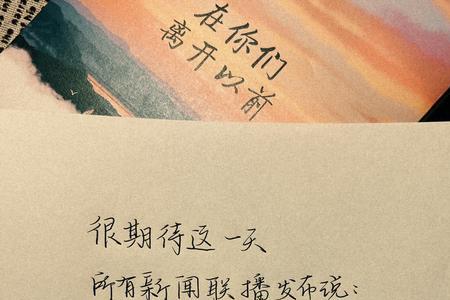 在你们
离开以前
很期待这一天
所有新闻联播发布说：